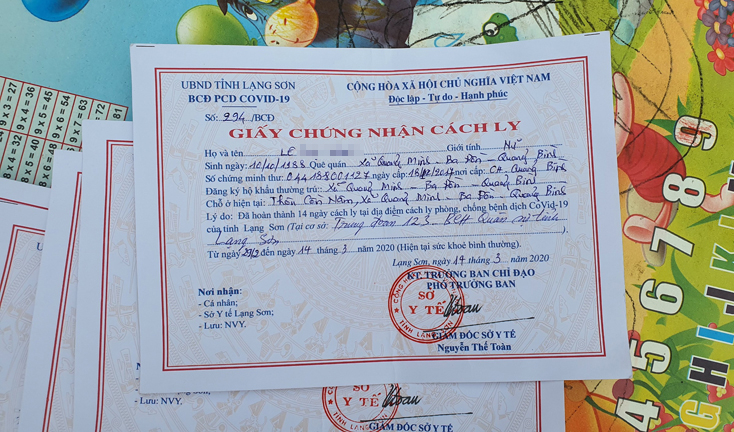 UBND TỈNH LẠNG SƠN
BCĐ PCD COVID-19
CỘNG HÒA XÃ HỘI CHỦ NGHĨA VIỆT NAM
Độc lập - Tự do - Hạnh phúc
Số: 294 /BCĐ
GIẤY CHỨNG NHẬN CÁCH LY
Họ và tên LÊ Giới tính Nữ
Sinh ngày: 10/10/1988 Quê quán Xã Quảng Minh - Ba Đồn - Quảng Bình
Số chứng minh thư: 044188001127 ngày cấp: nơi cấp: CA. Quảng Bình
Đăng ký hộ khẩu thường trú: Xã Quảng Minh - Ba Đồn - Quảng Bình
Chỗ ở hiện tại: Thôn Cồn Nâm, Xã Quảng Minh - Ba Đồn - Quảng Bình
Lý do: Đã hoàn thành 14 ngày cách ly tại địa điểm cách ly phòng, chống bệnh dịch CoVid-19
của tỉnh Lạng Sơn (Tại cơ sở: Trung đoàn 123 BCH Quân sự tỉnh
Lạng Sơn ).
Từ ngày 29/2 đến ngày 14 tháng 3 năm 2020 (Hiện tại sức khoẻ bình thường).
Lạng Sơn, ngày 14 tháng 3 năm 2020
KT. TRƯỞNG BAN CHỈ ĐẠO
PHÓ TRƯỞNG BAN
Nơi nhận:
- Cá nhân;
- Sở Y tế Lạng Sơn;
- Lưu: NVY.
SỞ
Y TẾ
TỈNH LẠNG SƠN
GIÁM ĐỐC SỞ Y TẾ
Nguyễn Thế Toàn
- Lưu: NVY.
SỞ
Y TẾ
9 x 3 = 27
9 x 4 = 36
9 x 5 = 45
9 x 6 = 54
9 x 7 = 63
9 x 8 = 72
4 5 6 7 8 9
G H I J K